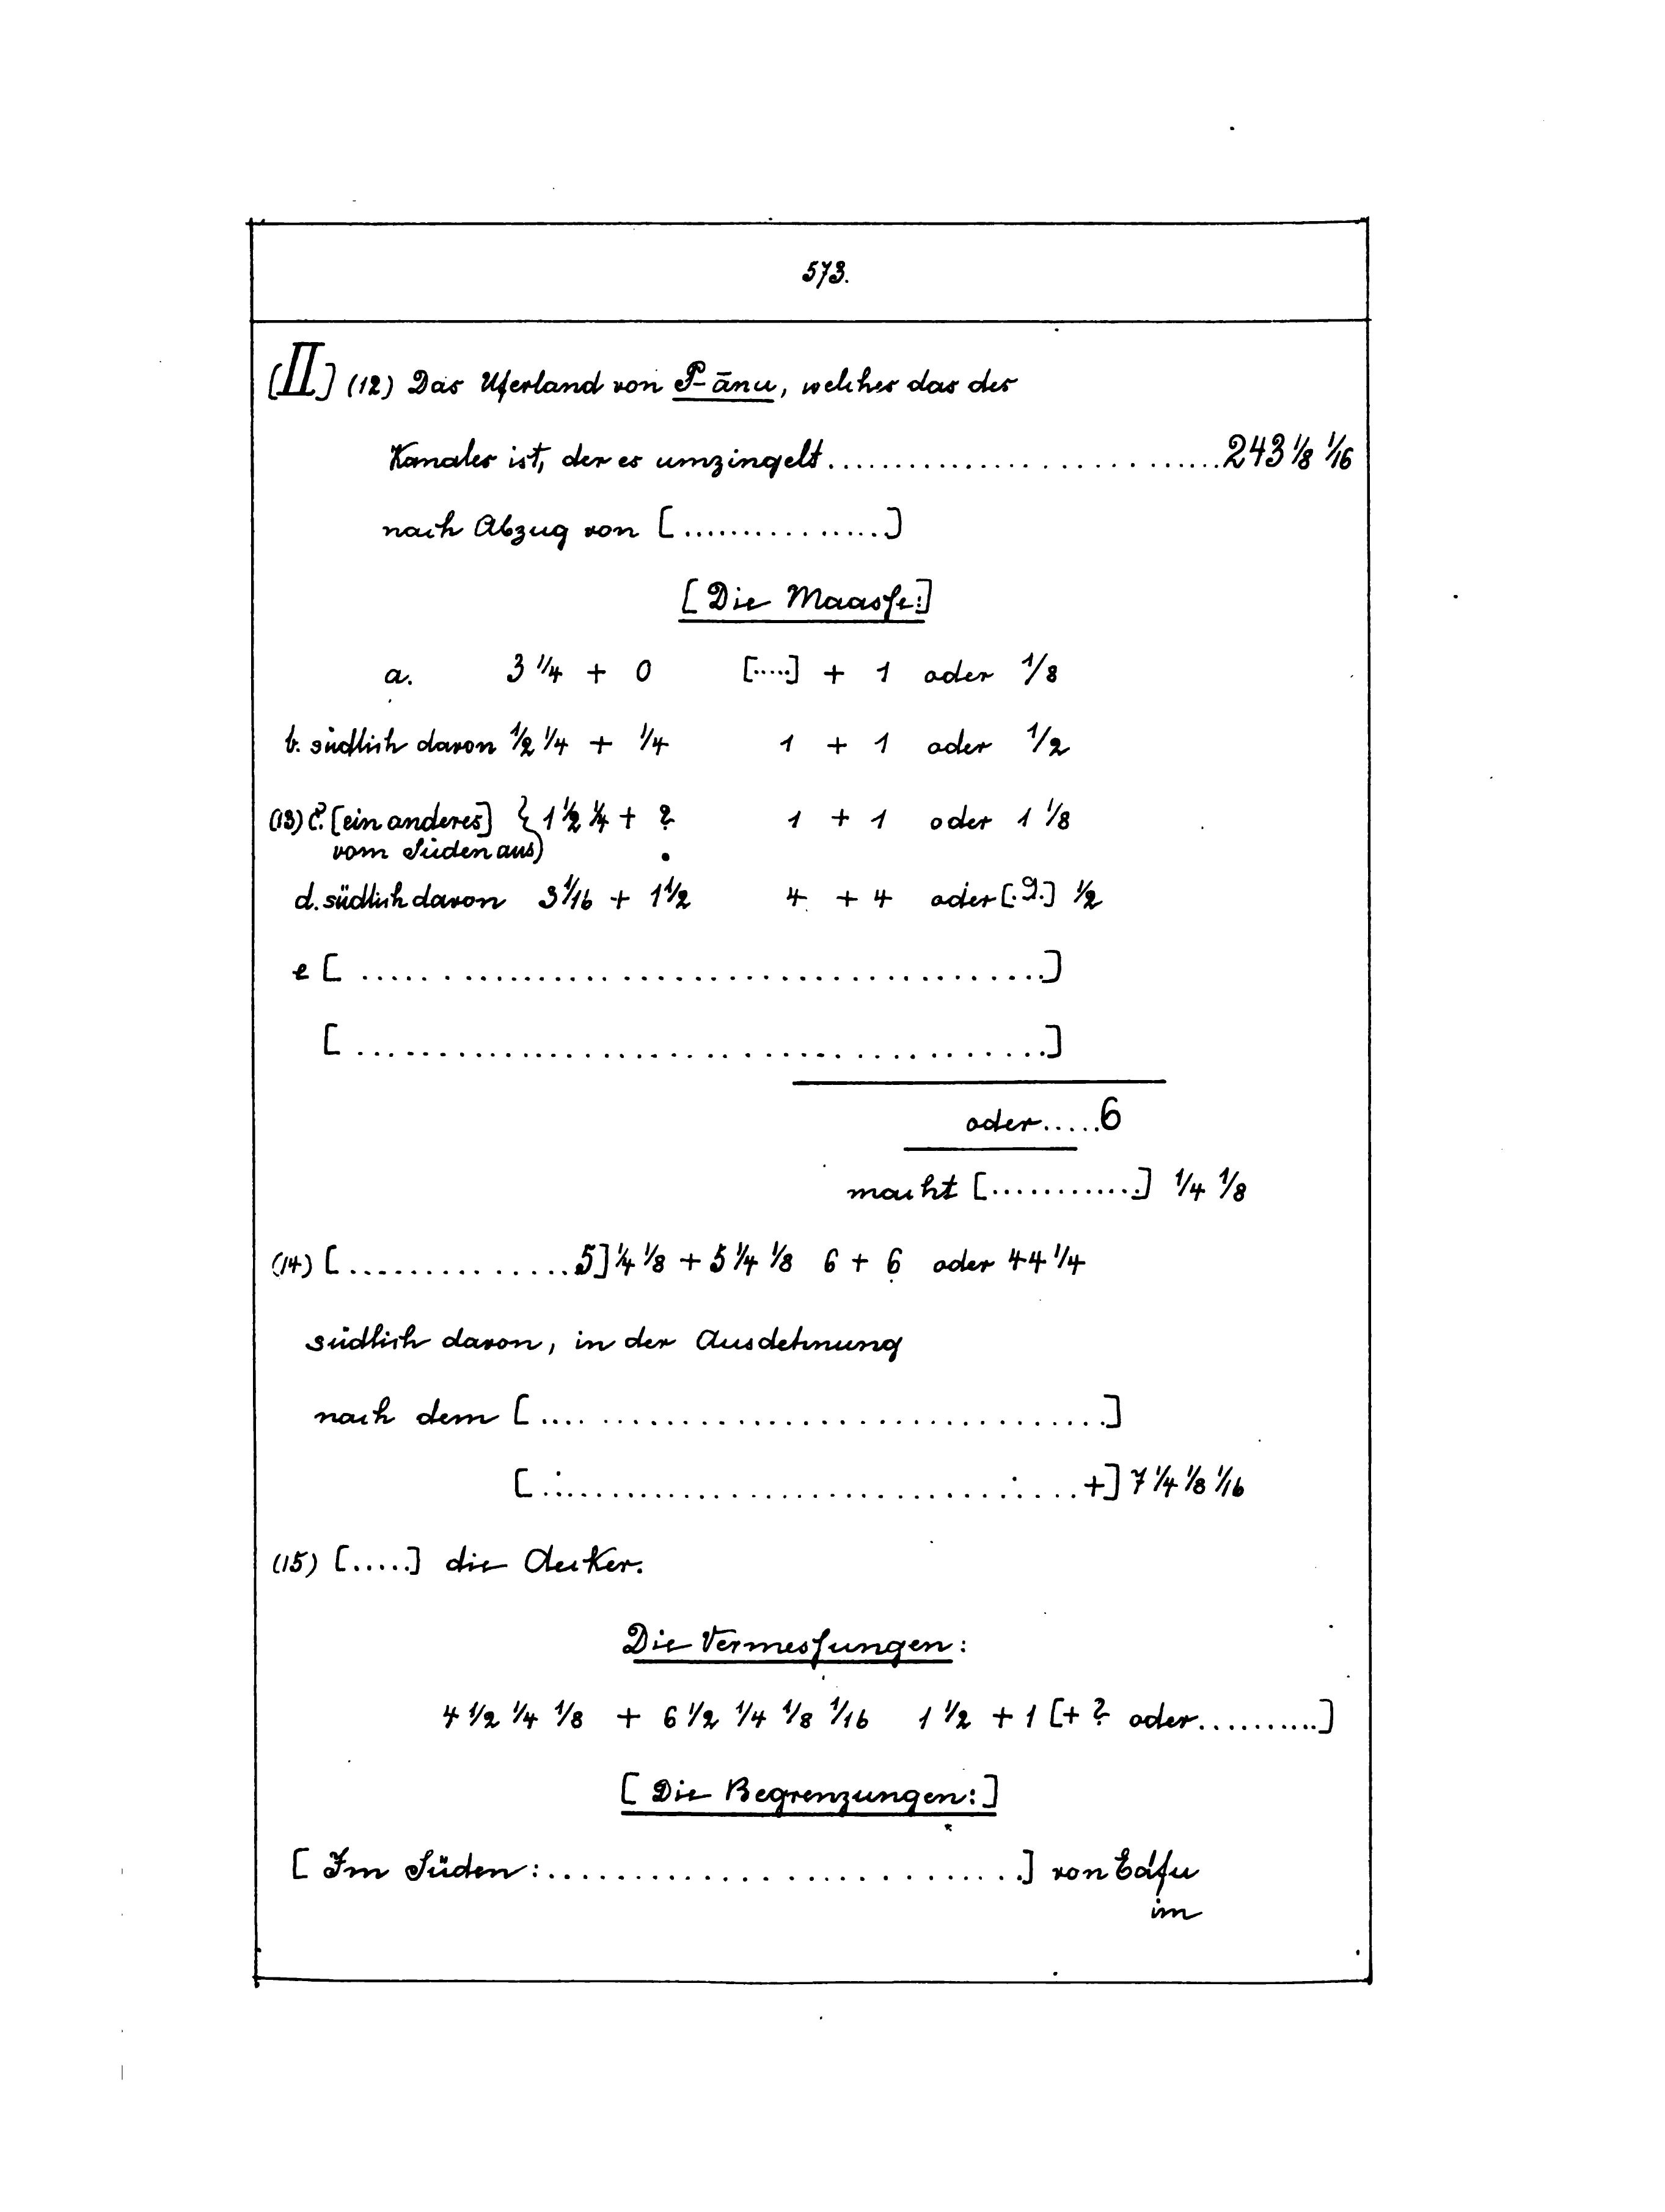 573.
[II] (12) Das Uferland von P-ānu, welches das des
Kanales ist, der es umzingelt.............................243 1/8 1/16
nach Abzug von [...............]
[Die Maasse:]
a. 3 1/4 + 0 [.....] + 1 oder 1/8
b. südlich davon 1/2 1/4 + 1/4 1 + 1 oder 1/2
(13) c. [ein anderes] { 1 1/2 1/4 + ? 1 + 1 oder 1 1/8
vom Süden aus)
d. südlich davon 3 1/16 + 1 1/2 4 + 4 oder [.9.] 1/2
e [.............................................]
[.............................................]
oder.....6
macht [............] 1/4 1/8
(14) [...............5] 1/4 1/8 + 5 1/4 1/8 6 + 6 oder 44 1/4
südlich davon, in der Ausdehnung
nach dem [.....................................]
[.....................................+] 7 1/4 1/8 1/16
(15) [.....] die Aecker.
Die Vermessungen:
4 1/2 1/4 1/8 + 6 1/2 1/4 1/8 1/16 1 1/2 + 1 [+ ? oder...........]
[Die Begrenzungen:]
[Im Süden:............................] von Edfu
im